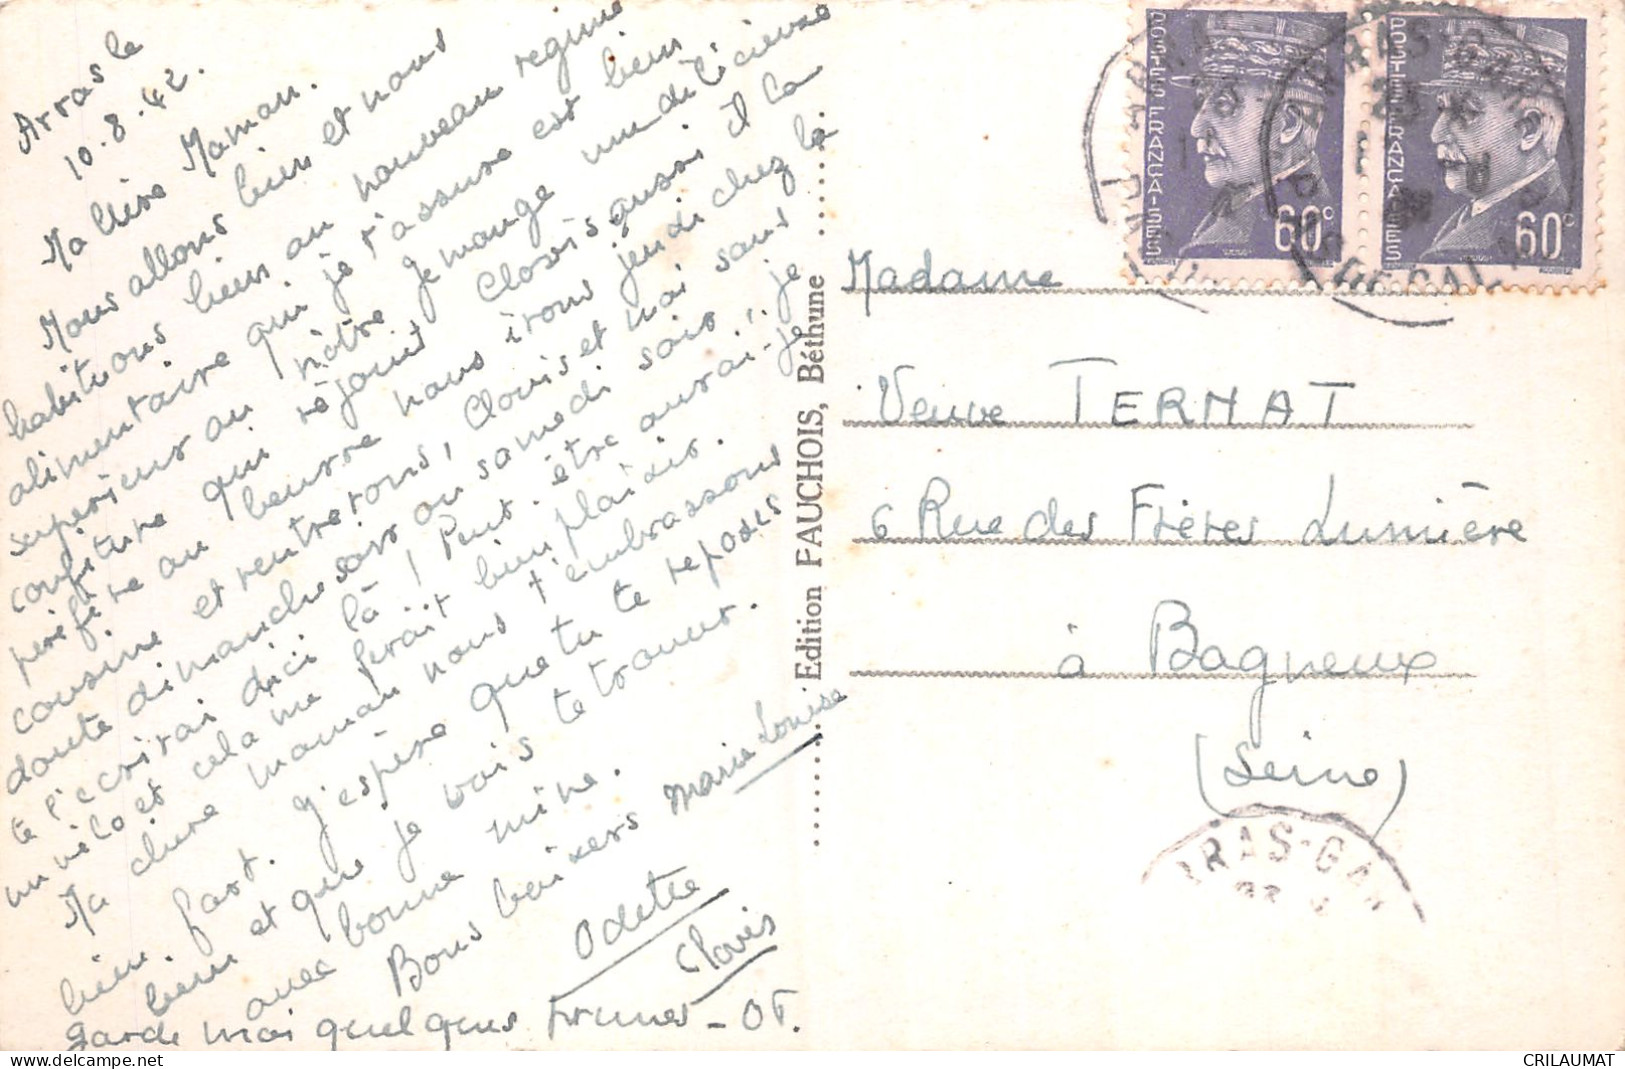 Arras le
10.8.42.
Ma chère Maman.
Nous allons bien et nous
habituons bien au nouveau régime
alimentaire qui je t'assure est bien
supérieur au nôtre. Je mange un délicieuse
confiture qui réjouit Clovis aussi il la
préfère au beurre nous irons jeudi chez la
cousine et rentrerons, Clovis et moi sans
doute dimanche soir ou samedi soir, je
te l'écrirai d'ici là ! Peut-être aurai-je
un vélo et cela me ferait bien plaisir.
Ma chère maman nous t'embrassons
bien fort. J'espère que tu te reposes
bien et que je vais te trouver
avec bonne mine.
Bons baisers Marie Louise
Odette
Clovis
garde moi quelques prunes - OT.
Edition FAUCHOIS, Béthune
POSTES FRANÇAISES
60c
POSTES FRANÇAISES
60c
ARRAS-GARE
PAS DE CALAIS
Madame
Veuve TERNAT
6 Rue des Frères Lumière
à Bagneux
(Seine)
ARRAS-GARE
CRILAUMAT